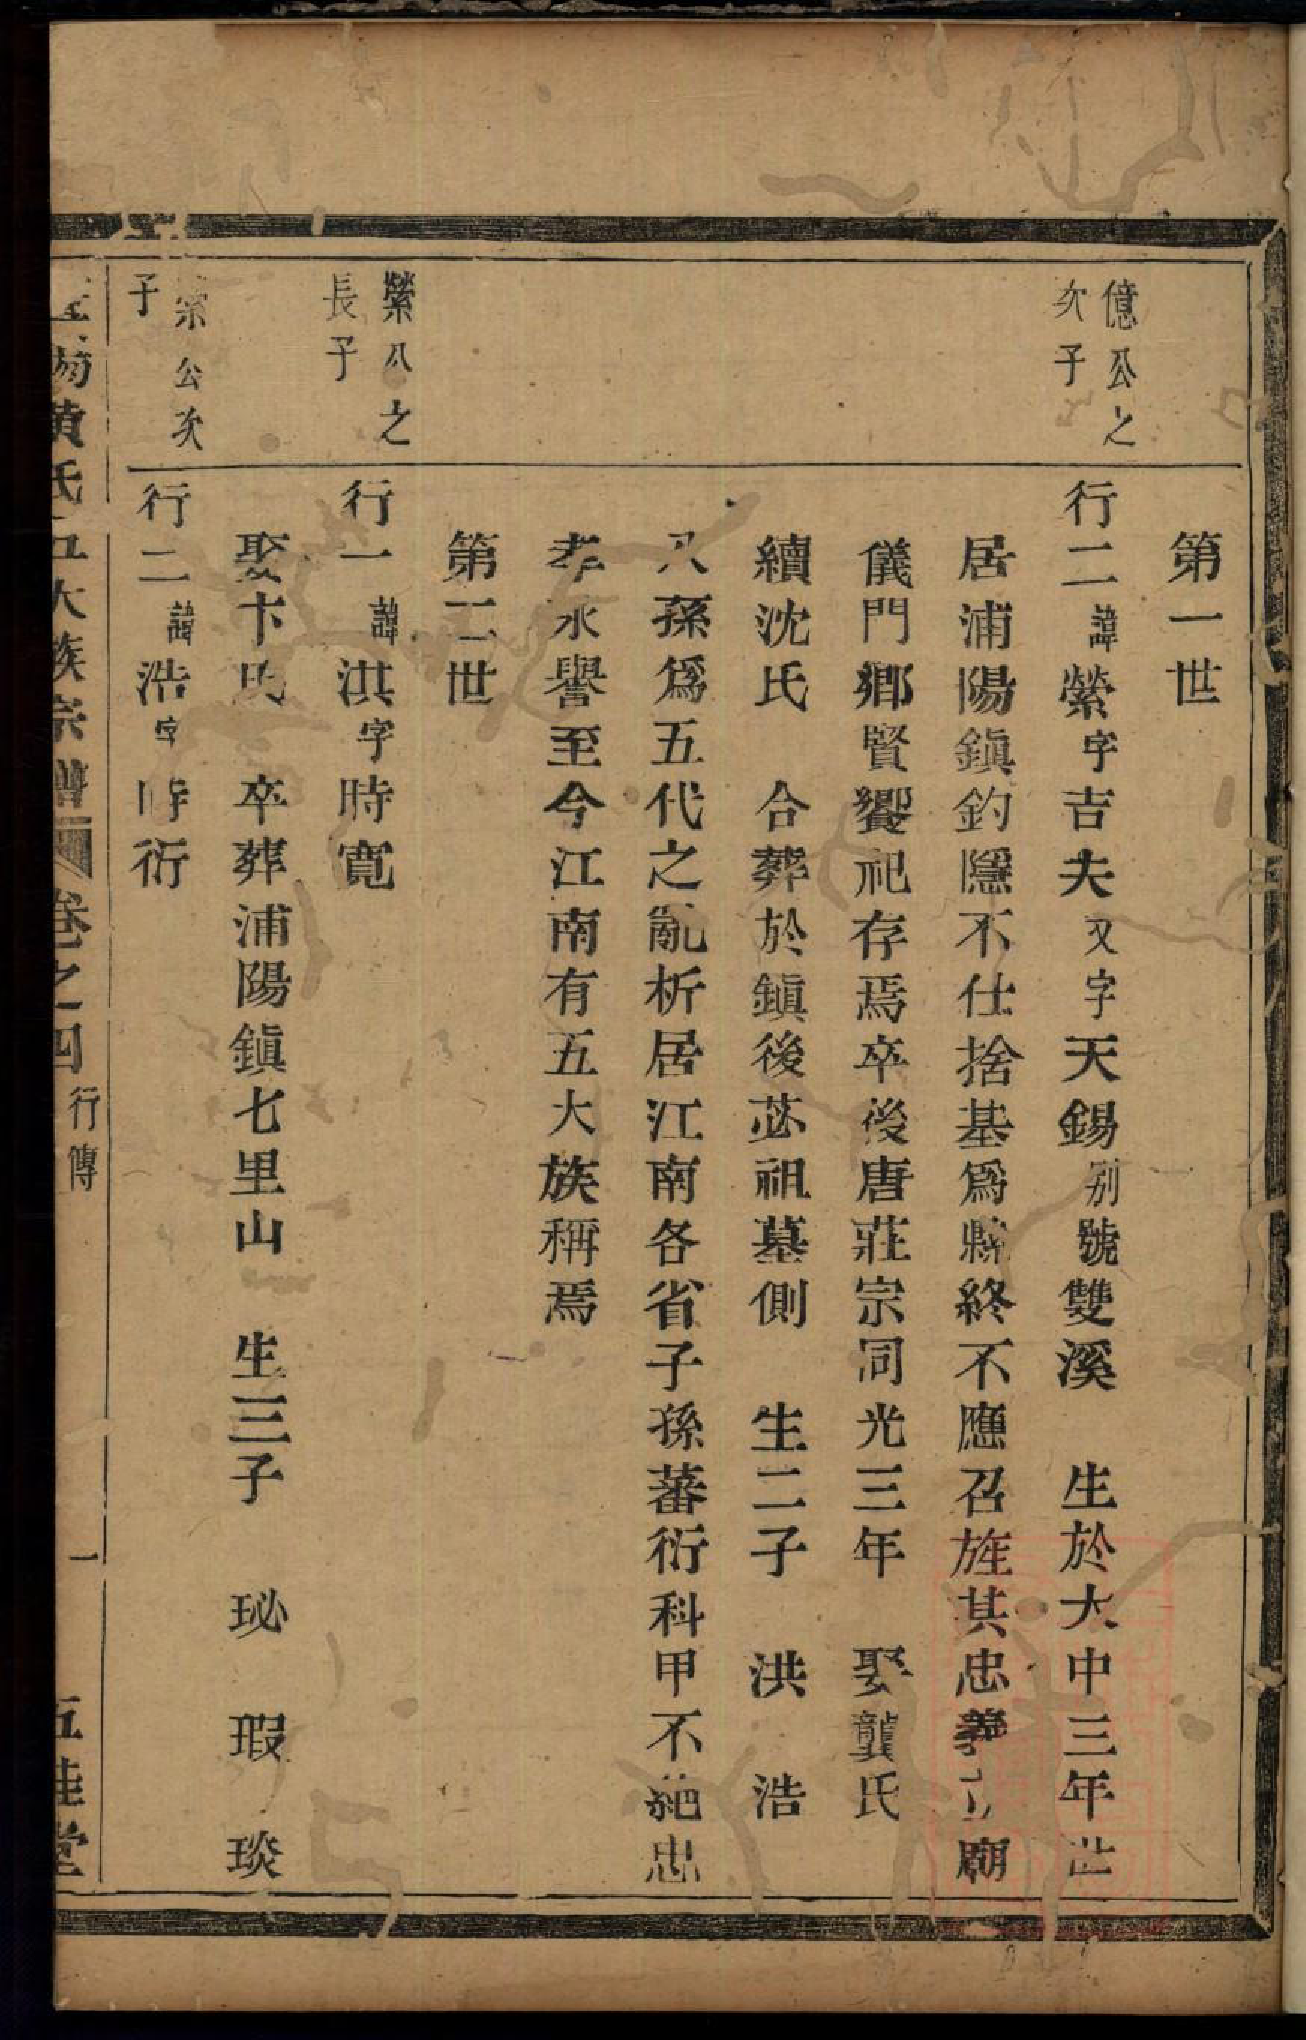 第一世
億公之
次子
行二諱縈字吉夫又字天錫別號雙溪　生於大中三年世
居浦陽鎭釣隱不仕捨基爲縣終不應召旌其忠義立廟
儀門鄉賢饗祀存焉卒後唐莊宗同光三年　娶龔氏
續沈氏　合葬於鎭後苾祖墓側　生二子　洪　浩
孫爲五代之亂析居江南各省子孫蕃衍科甲不絕忠
孝永譽至今江南有五大族稱焉
第二世
縈公之
長子
行一諱淇字時寬
娶卞氏　卒葬浦陽鎭七里山　生三子　珌　瑕　琰
縈公次
子
行二諱浩字時衍
黃氏五大族宗譜　卷之四　行傳　一　五桂堂